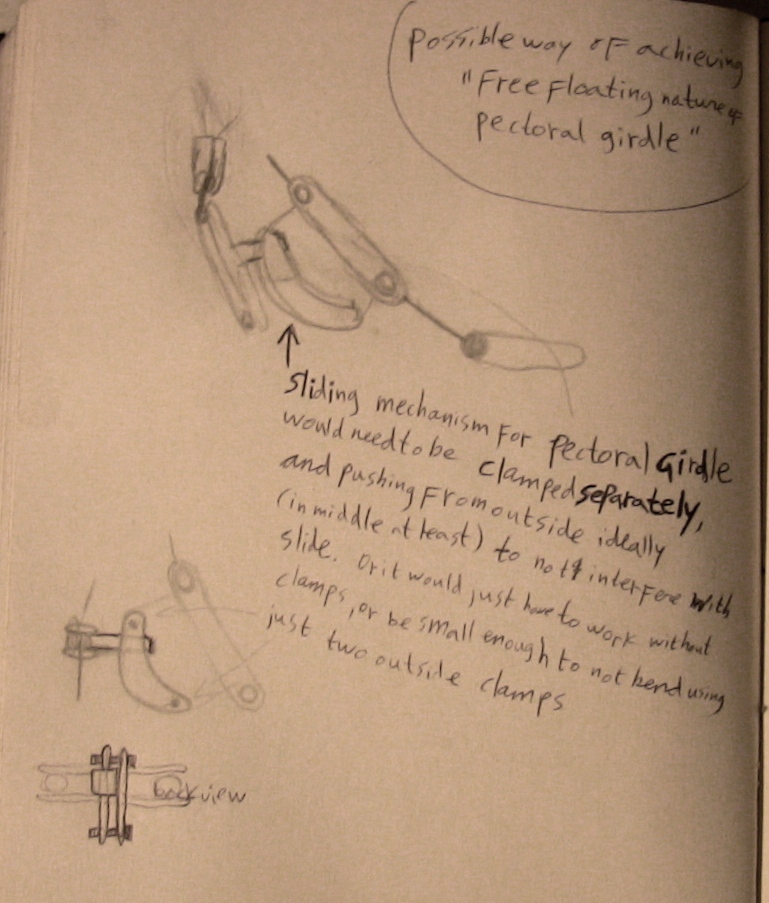 Possible way of achieving
"Free Floating nature of
pectoral girdle"
Sliding mechanism For Pectoral Girdle
would need to be clamped separately,
and pushing From outside ideally
(in middle at least) to not interfere with
slide. Or it would just have to work without
clamps, or be small enough to not bend using
just two outside clamps
back view